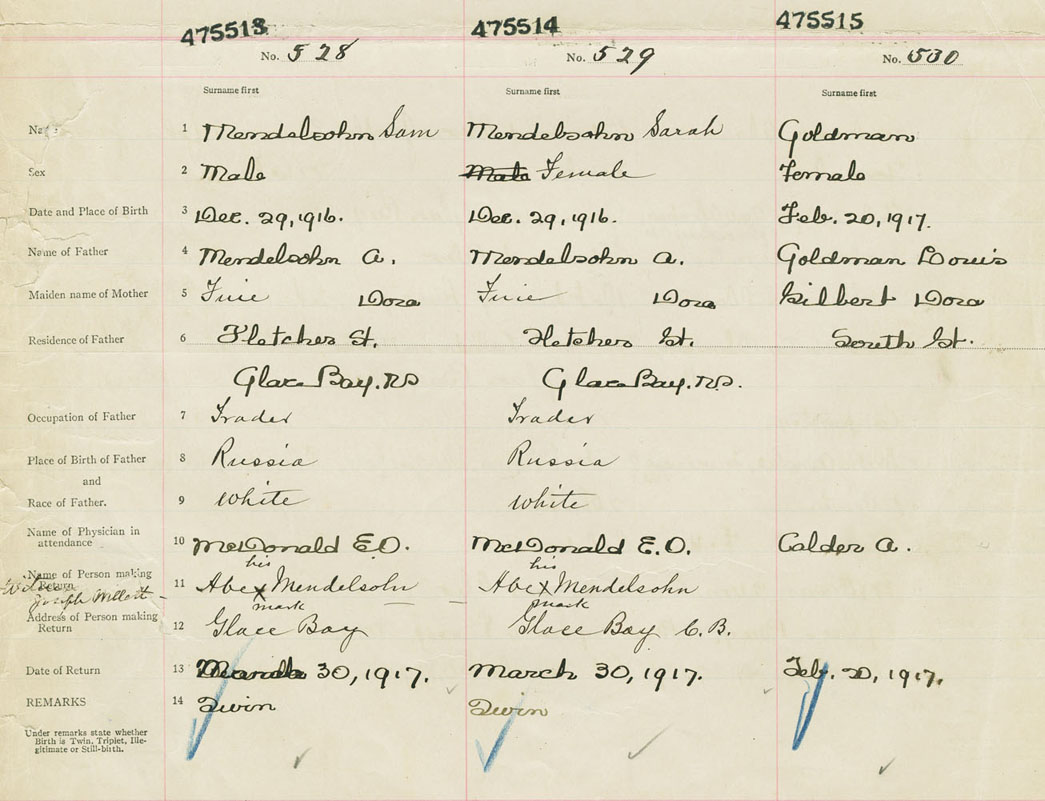 475513 475514 475515
No. 528 No. 529 No. 530
Surname first Surname first Surname first
Name 1 Mendelsohn Sam Mendelsohn Sarah Goldman
Sex 2 Male Male Female Female
Date and Place of Birth 3 Dec. 29, 1916. Dec. 29, 1916. Feb. 20, 1917.
Name of Father 4 Mendelsohn A. Mendelsohn A. Goldman Louis
Maiden name of Mother 5 Dora Dora Gilbert Dora
Residence of Father 6 Fletcher St. Fletcher St. South St.
Glace Bay. NS Glace Bay. NS.
Occupation of Father 7 Trader Trader
Place of Birth of Father 8 Russia Russia
and
Race of Father. 9 White White
Name of Physician in
attendance 10 McDonald E.O. McDonald E.O. Calder A.
his his
Name of Person making
Return 11 Abe X Mendelsohn Abe X Mendelsohn
Joseph
mark mark
Address of Person making
Return 12 Glace Bay Glace Bay C.B.
Date of Return 13 March 30, 1917. March 30, 1917. Feb. 20, 1917.
REMARKS 14 Twin Twin
Under remarks state whether
Birth is Twin, Triplet, Ille-
gitimate or Still-birth.